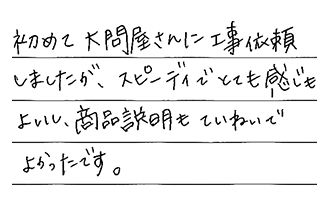 初めて大問屋さんに工事依頼
しましたが、スピーディでとても感じも
よいし、商品説明もていねいで
よかったです。